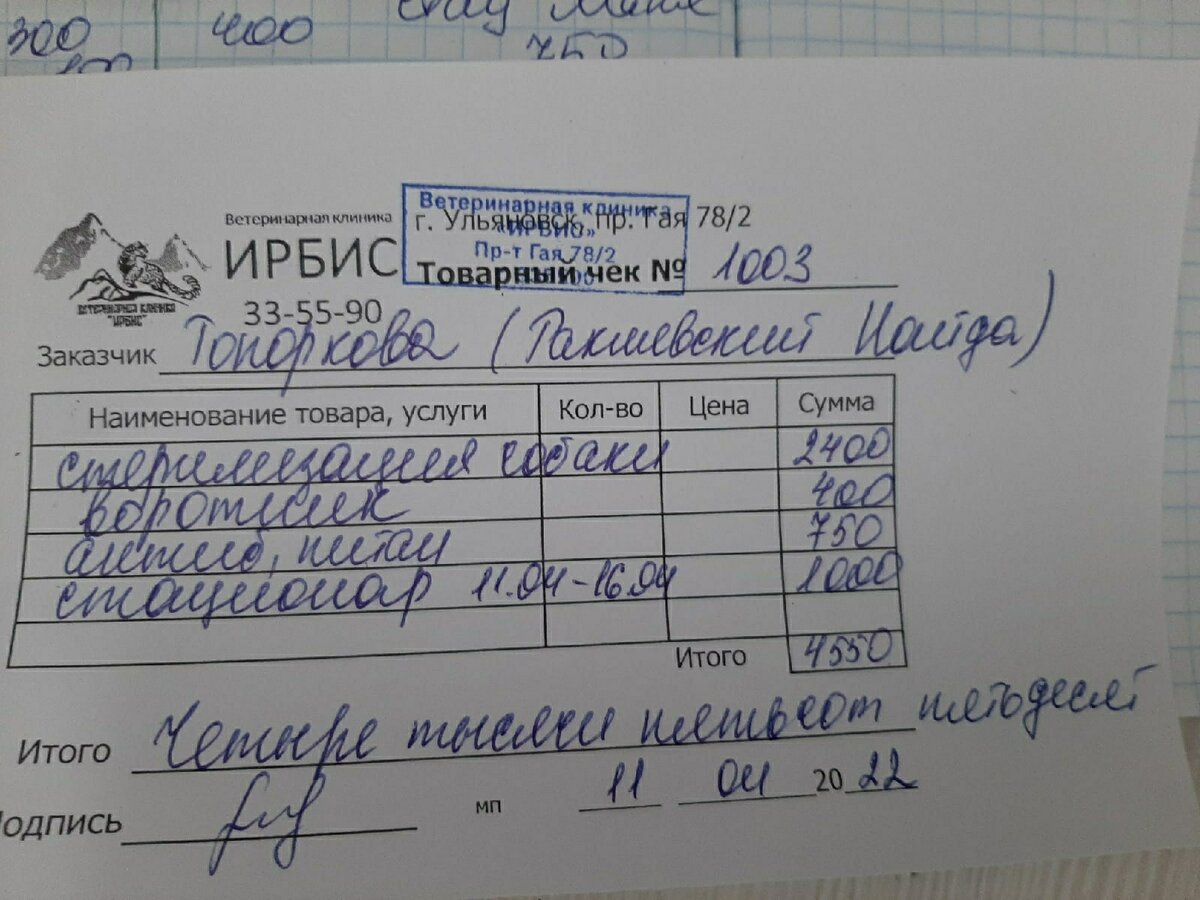 300 400
750
Ветеринарная клиника
ИРБИС
33-55-90
ВЕТЕРИНАРНАЯ КЛИНИКА
"ИРБИС"
г. Ульяновск, пр. Гая 78/2
Ветеринарная клиника
«ИРБИС»
Пр-т Гая 78/2
Товарный чек № 1003
Заказчик Топоркова (Ракшевский Найда)
Наименование товара, услуги Кол-во Цена Сумма
стерилизация собаки 2400
воротник 400
антиб, питан 750
стационар 11.04-16.04 1000
Итого 4550
Итого Четыре тысячи пятьсот пятьдесят
Подпись мп 11 04 2022